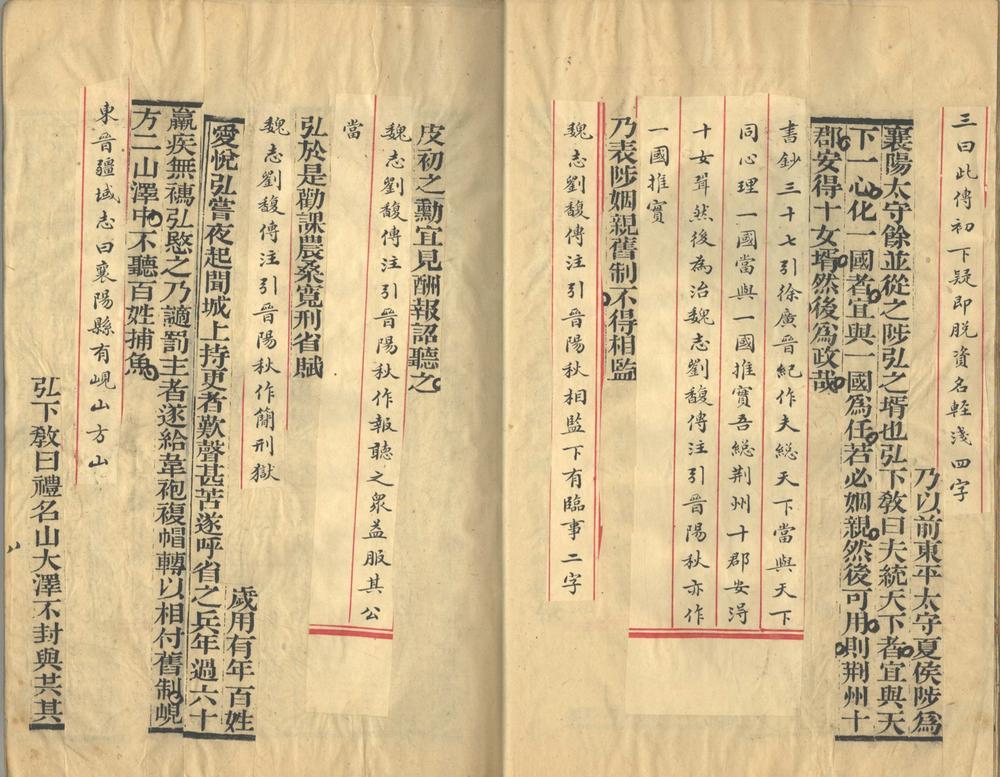 三曰此傳初下疑即脱資名輕淺四字
乃以前東平太守夏侯陟爲
襄陽太守餘並從之陟弘之壻也弘下敎曰夫統天下者宜與天
下一心化一國者宜與一國爲任若必姻親然後可用則荆州十
郡安得十女壻然後爲政哉
書鈔三十七引徐廣晉紀作夫緫天下當與天下
同心理一國當與一國推實吾緫荆州十郡安淂
十女聟然後為治魏志劉馥傳注引晉陽秋亦作
一國推實
乃表陟姻親舊制不得相監
魏志劉馥傳注引晉陽秋相監下有臨事二字
皮初之勳宜見酬報詔聽之
魏志劉馥傳注引晉陽秋作報聽之衆益服其公
當
弘於是勸課農桑寬刑省賦
魏志劉馥傳注引晉陽秋作簡刑獄
歲用有年百姓
愛悅弘嘗夜起聞城上持更者歎聲甚苦遂呼省之兵年過六十
羸疾無襦弘愍之乃讁罰主者遂給韋袍複帽轉以相付舊制峴
方二山澤中不聽百姓捕魚
東晉疆域志曰襄陽縣有峴山方山
弘下敎曰禮名山大澤不封與共其